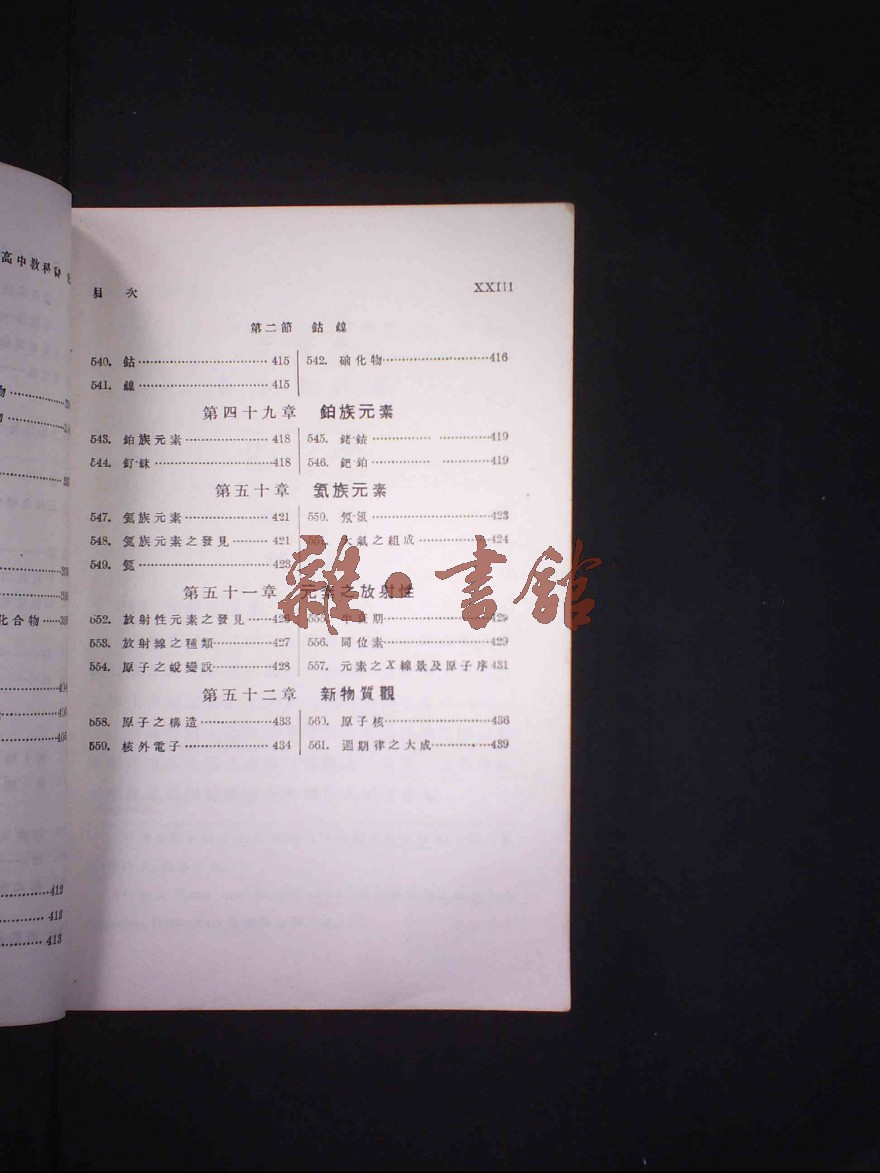 高中教科
412
412
413
目次 XXIII
第二節 鈷 鎳
540. 鈷 415
541. 鎳 415
542. 硇化物 416
第四十九章 鉑族元素
543. 鉑族元素 418
544. 釕·銖 418
545. 銠·銥 419
546. 鈀·鉑 419
第五十章 氦族元素
547. 氦族元素 421
548. 氦族元素之發見 421
549. 氦 423
550. 氖·氬 423
大氣之組成 424
第五十一章 元素之放射性
552. 放射性元素之發見 426
553. 放射線之種類 427
554. 原子之蛻變說 428
555. 半衰期 429
556. 同位素 429
557. 元素之X線景及原子序 431
第五十二章 新物質觀
558. 原子之構造 433
559. 核外電子 434
560. 原子核 436
561. 週期律之大成 439
雜·書館